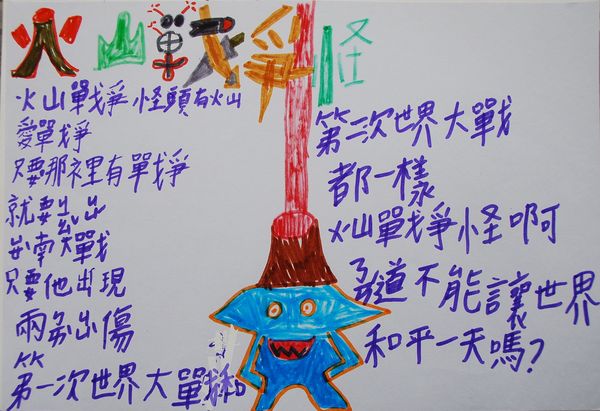 火山戰爭怪
火山戰爭怪頭有火山
愛戰爭
只要那裡有戰爭
就要
南大戰
只要他出現
兩傷
第一次世界大戰和
第二次世界大戰
都一樣
火山戰爭怪啊
道不能讓世界
和平一天嗎?